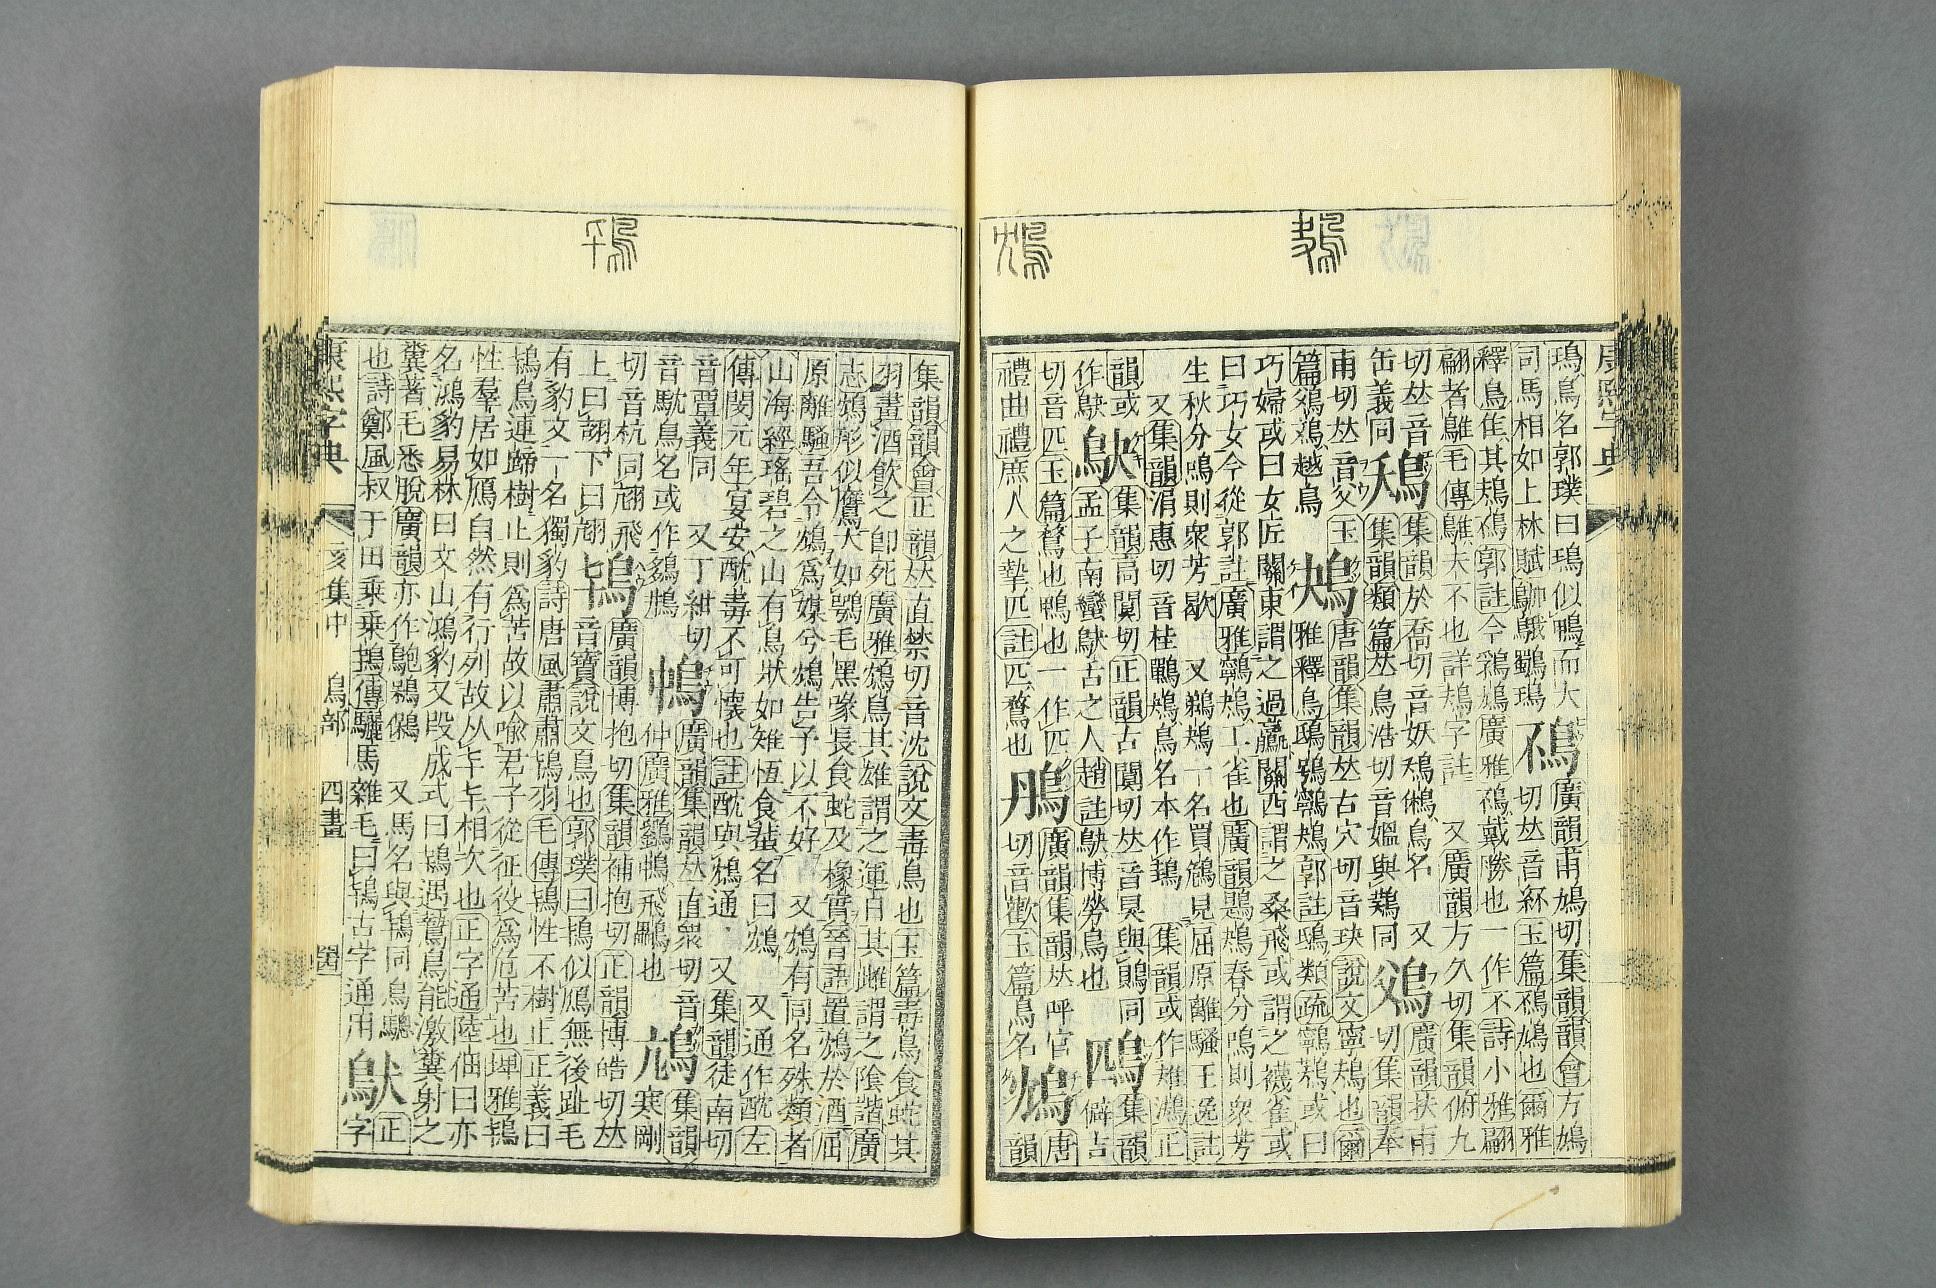 康熙字典
鳥名郭璞曰鳿似鴨而大 鴀 廣韻甫鳩切集韻韻會方鳩
司馬相如上林賦鸀鳿 切𠀤音紑玉篇鴀鳩也爾雅
釋鳥隹其鳺鴀郭註今鳩廣雅鴀戴勝也一作不詩小雅翩
翩者鵻毛傳鵻夫不也詳鳺字註 又廣韻方久切集韻俯九
切𠀤音 鴁 集韻於喬切音妖鴁鳥名 又 廣韻扶甫
缶義同 集韻類篇𠀤烏浩切音媼與同 切集韻奉
甫切𠀤音父玉 鴂 唐韻集韻𠀤古穴切音玦說文寧鴂也爾
篇越鳥 雅釋鳥鴟鴞鸋鴂郭註鴟類疏鸋鴂或曰
巧婦或曰女匠關東謂之過鸁關西謂之桑飛或謂之襪雀或
曰巧女今從郭註廣雅鸋鴂工雀也廣韻鶗鴂春分鳴則衆芳
生秋分鳴則衆芳歇 又鷤鴂一名買見屈原離騷王逸註
又集韻涓惠切音桂鷤鴂鳥名本作 集韻或作正
韻或 鴃 集韻扃闃切正韻古闃切𠀤音臭與鶪同 鴄 集韻
作鴃 孟子南蠻鴃舌之人趙註鴃博勞鳥也 僻吉
切音匹玉篇鶩也鴨也一作匹 廣韻集韻𠀤呼官 鴆 唐
禮曲禮庶人之摯匹註匹鶩也 切音歡玉篇鳥名 韻
集韻韻會正韻𠀤直禁切音沈說文毒鳥也玉篇毒鳥食蛇其
羽畫酒飲之卽死廣雅鴆鳥其雄謂之運日其雌謂之隂諧廣
志鴆形似鷹大如鶚毛黑喙長食蛇及橡實晉語置鴆於酒屈
原離騷吾令鴆爲媒兮鴆告予以不好 又鴆有同名殊類者
山海經瑤碧之山有鳥狀如雉恆食蜚名曰鴆 又通作酖左
傳閔元年宴安酖毒不可懷也註酖與鴆通 又集韻徒南切
音覃義同 又丁紺切 廣韻集韻𠀤直衆切音 集韻
音鳥名或作 仲廣雅飛鸓也 寒剛
切音杭同飛 鴇 廣韻博抱切集韻補抱切正韻博皓切𠀤
上曰翓下曰 音寶說文鳥也郭璞曰鴇似鴈無後趾毛
有豹文一名獨豹詩唐風肅肅鴇羽毛傳鴇性不樹止正義曰
鴇鳥連蹄樹止則爲苦故以喻君子從征役爲危苦也埤雅鴇
性羣居如鴈自然有行列故从相次也正字通陸佃曰亦
名鴻豹易林曰文山鴻豹又段成式曰鴇遇鷙鳥能激糞射之
糞著毛悉脫廣韻亦作 又馬名與同烏驄 正
也詩鄭風叔于田乘乘鴇傳驪馬雜毛曰鴇古字通用 字
康熙字典 亥集中 鳥部 四畫